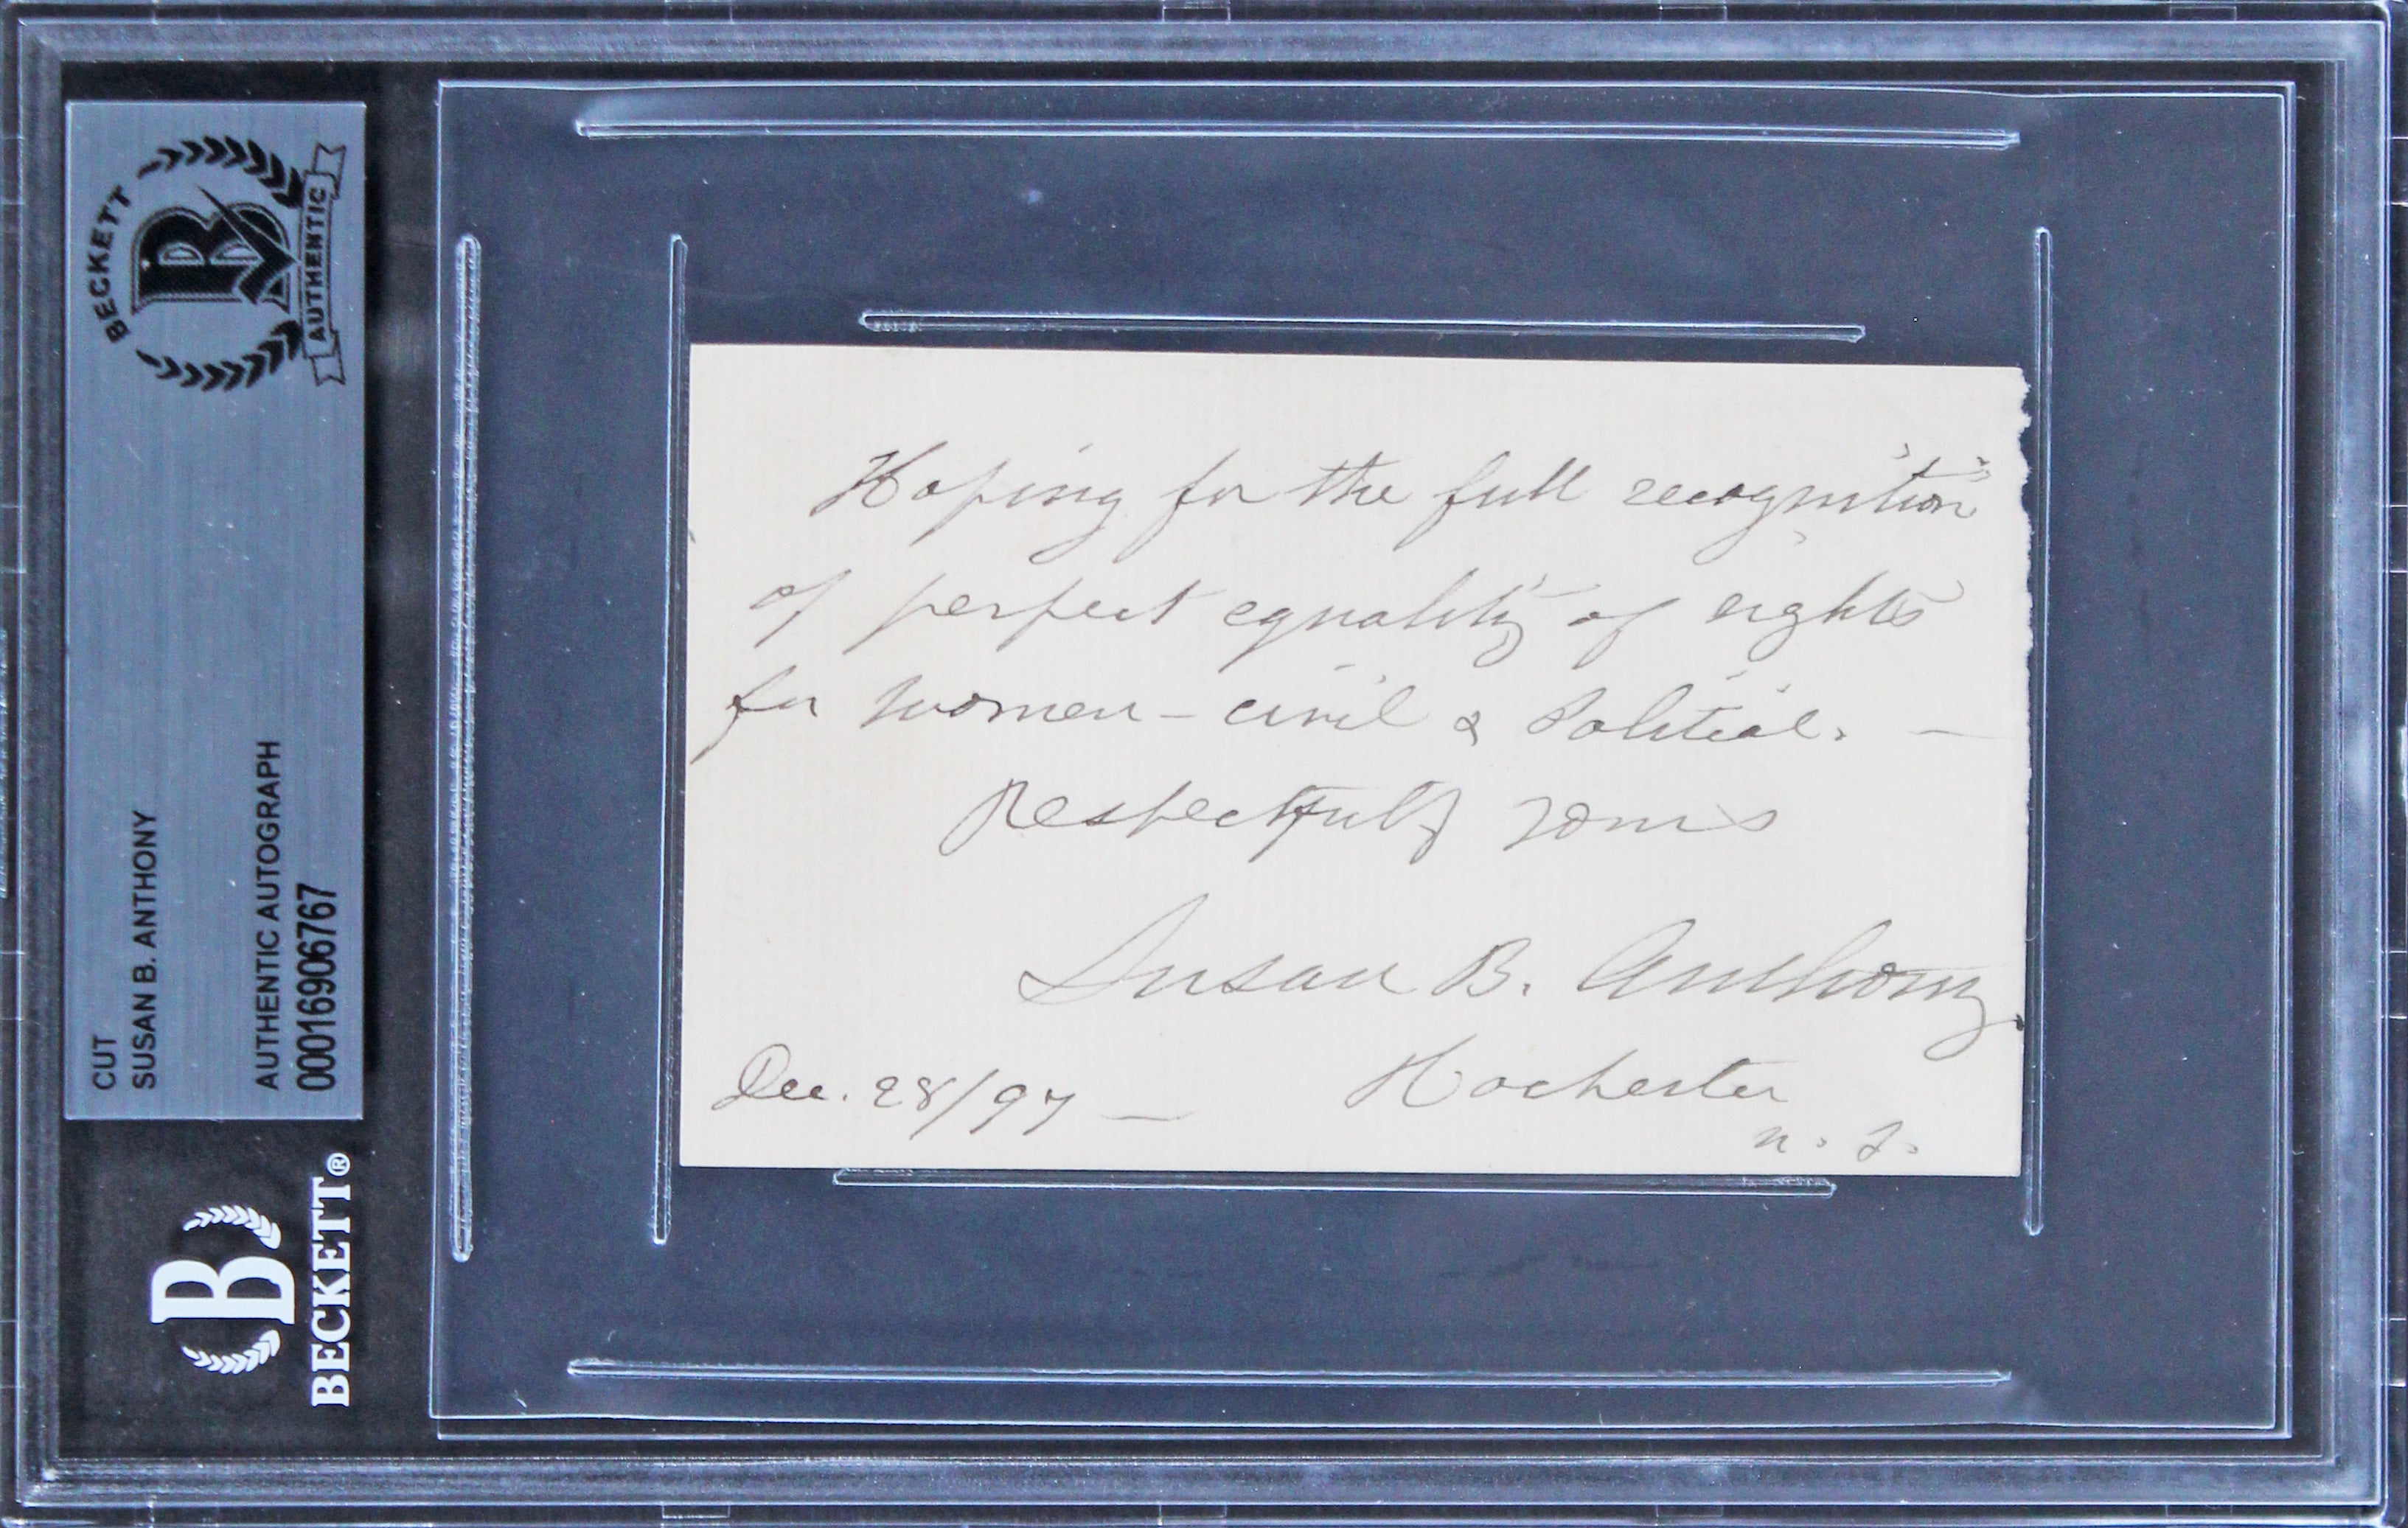 BECKETT
AUTHENTIC
CUT
SUSAN B. ANTHONY
AUTHENTIC AUTOGRAPH
00016906767
BECKETT®
Hoping for the full recognition
of perfect equality of rights
for women – civil & Political. —
Respectfully yours
Susan B. Anthony
Dec. 28/97 — Rochester
N. Y.